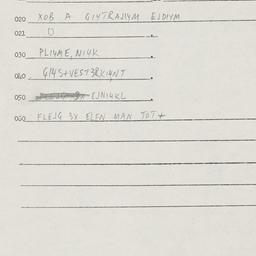 020 XOB A GI4TRAJIYM EJDIYM
021 U .
030 PLI4ME, NI4K .
040 GI4S+VEST3RKI4NT .
050 EJNI4KL .
060 FLEJG 3X ELEN MAN TOT+